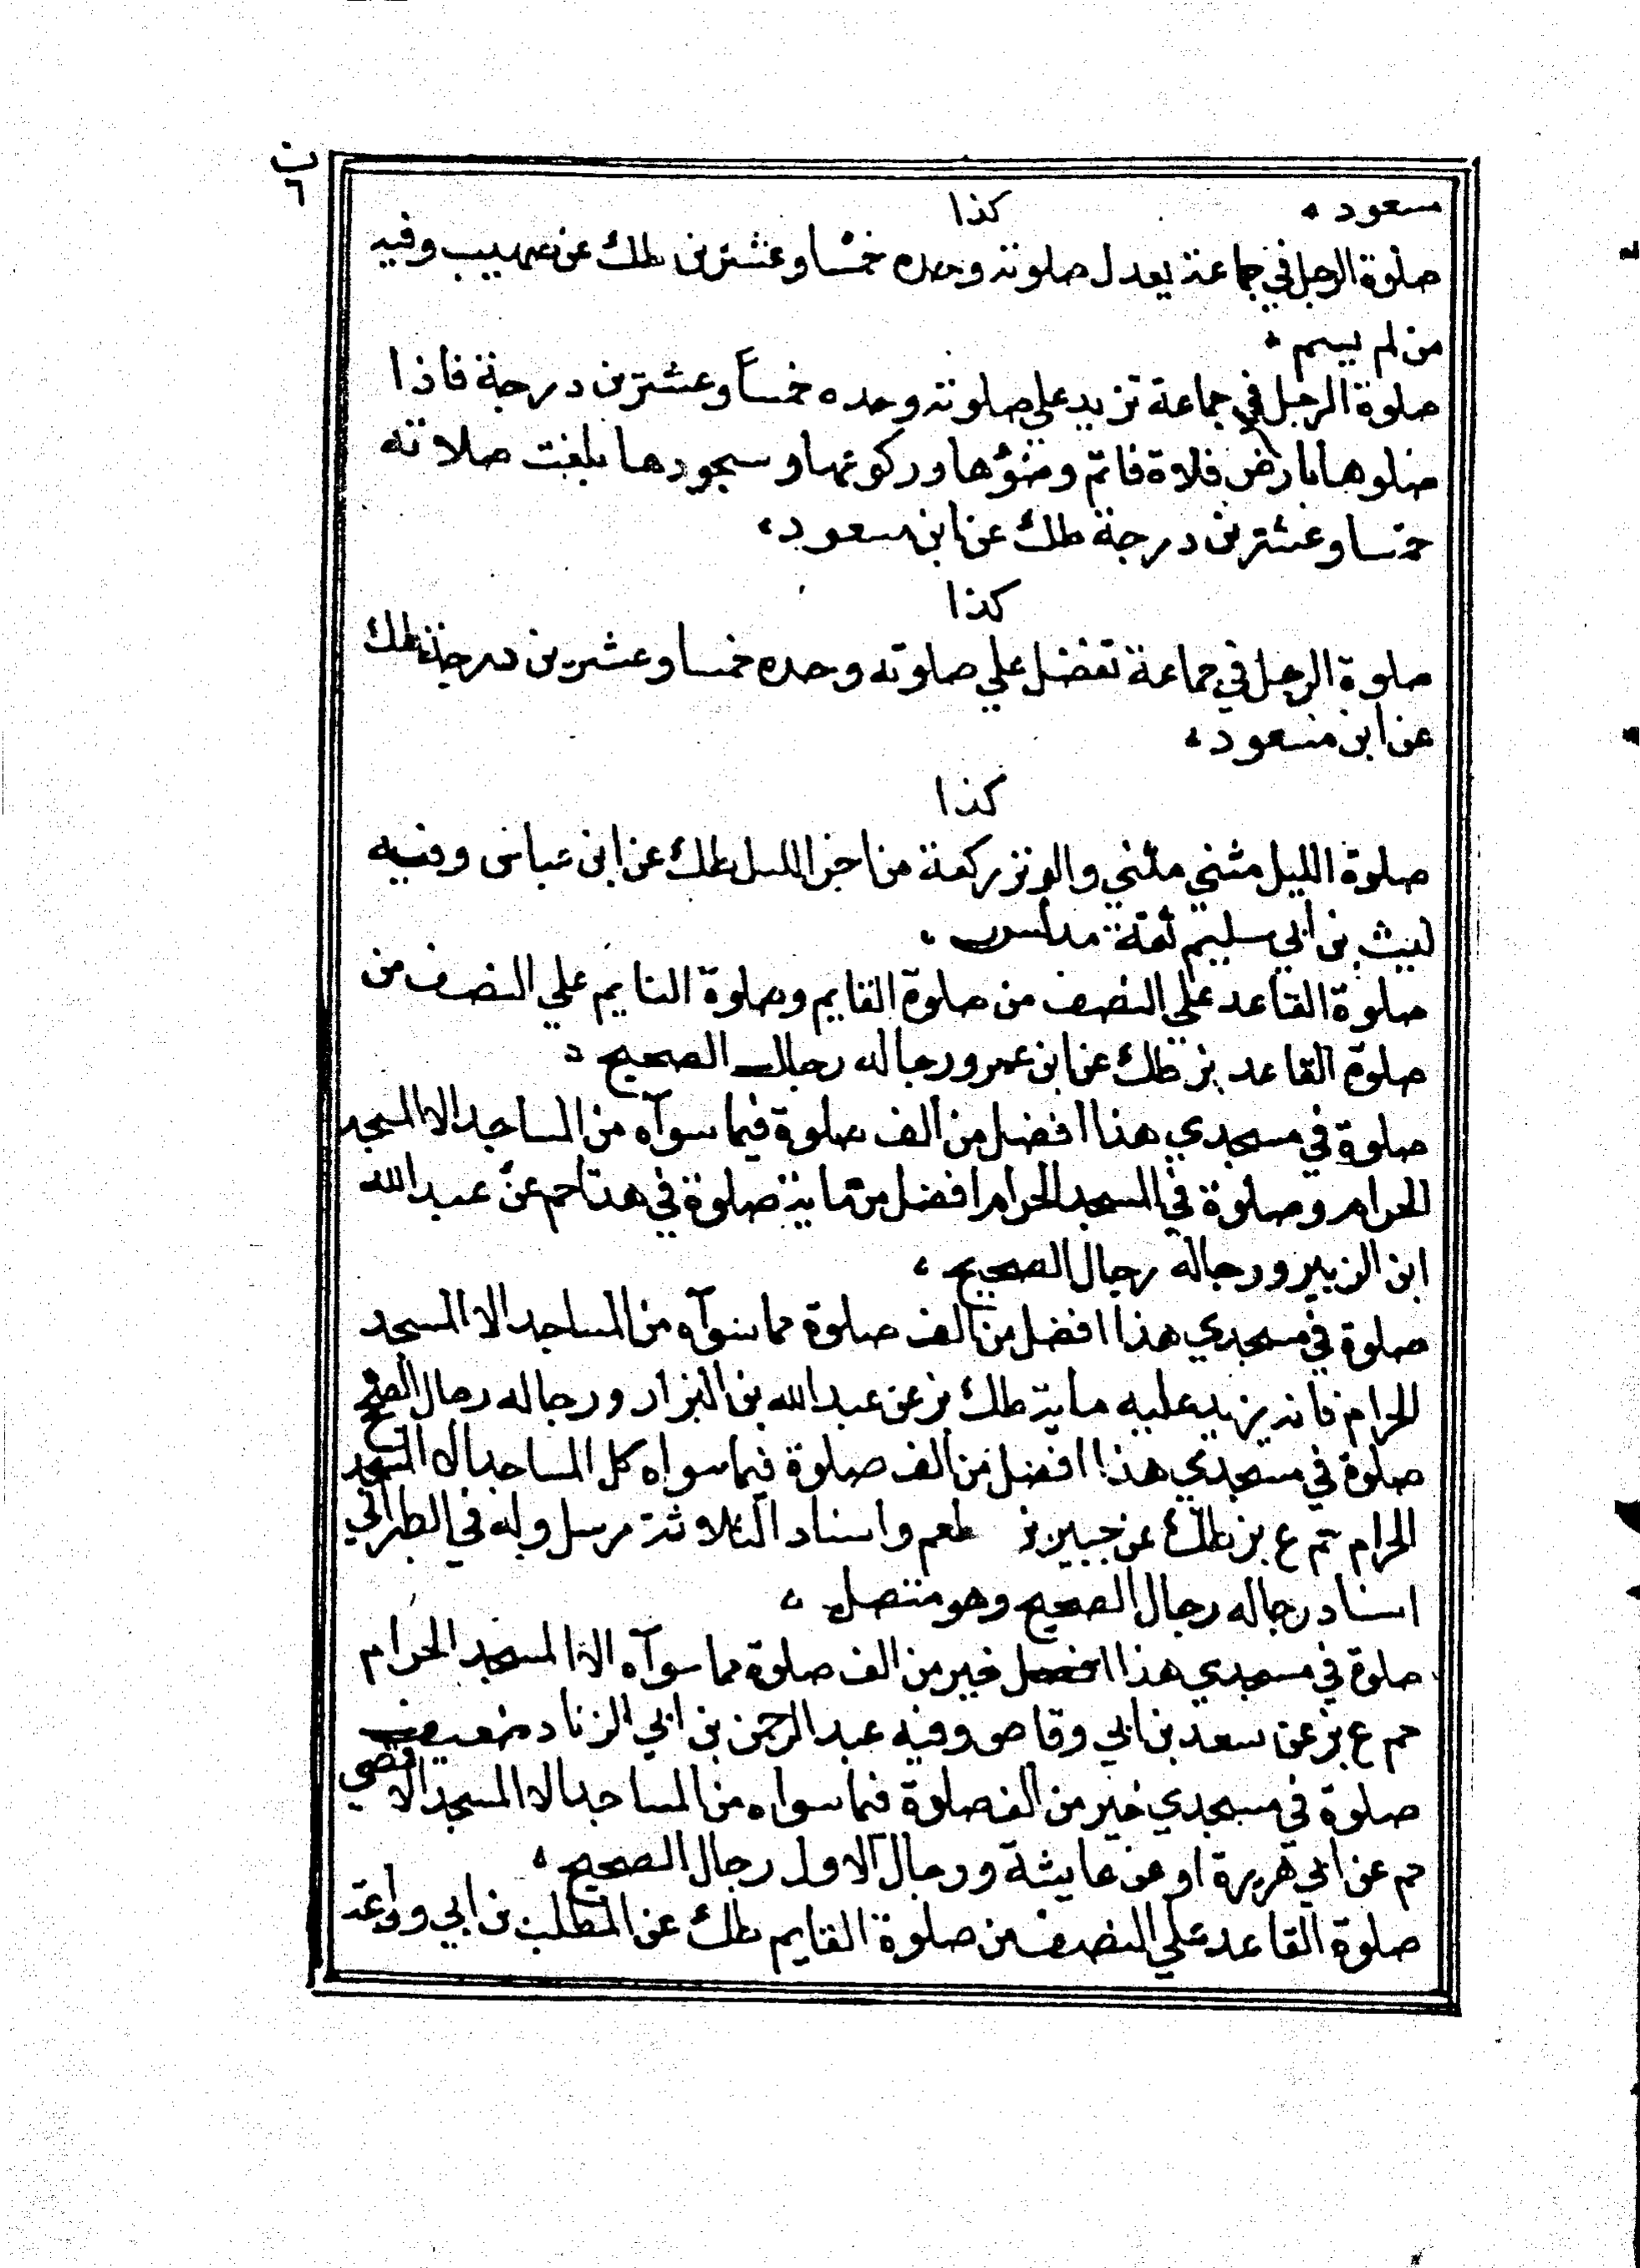 ب
٦
مسعود ،
كذا
صلوة الرجل في جماعة يعدل صلوته وحده خمسا وعشرين طك عن صهيب وفيه
من لم يسم ،
صلوة الرجل في جماعة تزيد علي صلوته وحده خمسا وعشرين درجة فاذا
صلوها بارض فلاة فاتم وضؤها وركوعها وسجودها بلغت صلاته
خمسا وعشرين درجة طك عن ابن مسعود ،
كذا
صلوة الرجل في جماعة تفضل علي صلوته وحده خمسا وعشرين درجة طك
عن ابن مسعود ،
كذا
صلوة الليل مثني مثني والوتر ركعة من اخر الليل طك عن ابن عباس وفيه
ليث بن ابي سليم ثقة مدلس ،
صلوة القاعد علي النصف من صلوة القايم وصلوة النايم علي النصف من
صلوة القاعد بز طك عن ابن عمر ورجاله رجال الصحيح
صلوة في مسجدي هذا افضل من الف صلوة فيما سوآه من المساجد الا المسجد
الحرام وصلوة في المسجد الحرام افضل من ماية صلوة في هذا حم عن عبد الله
ابن الزبير ورجاله رجال الصحيح ،
صلوة في مسجدي هذا افضل من الف صلوة مما سوآه من المساجد الا المسجد
الحرام فانه يزيد عليه ماية طك بز عن عبد الله بن البزار ورجاله رجال الصحيح
صلوة في مسجدي هذا افضل من الف صلوة فيما سواه كل المساجد الا المسجد
الحرام حم ع بز طك عن جبير بن طعم واسناد الثلاثة مرسل وله في الطبراني
اسناد رجاله رجال الصحيح وهو متصل ،
صلوة في مسجدي هذا افضل خير من الف صلوة مما سوآه الا المسجد الحرام
حم ع بز عن سعد بن ابي وقاص وفيه عبد الرحمن بن ابي الزناد ضعيف
صلوة في مسجدي خير من الف صلوة فيما سواه من المساجد الا المسجد الاقصي
حم عن ابي هريرة او عن عايشة ورجال الاول رجال الصحيح ،
صلوة القاعد علي النصف من صلوة القايم طك عن المطلب بن ابي وداعة